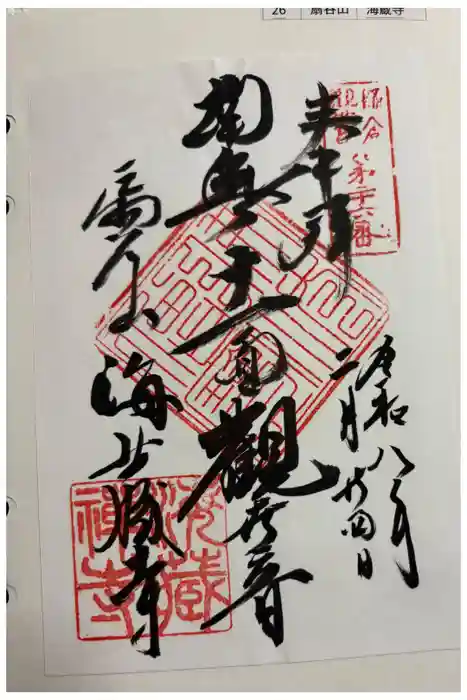 26 扇谷山 海蔵寺
鎌倉
観世音
第二十六番
奉拝
令和八年
二月廿四日
南無十一面觀世音
扇谷山
海蔵寺
海蔵
禅寺